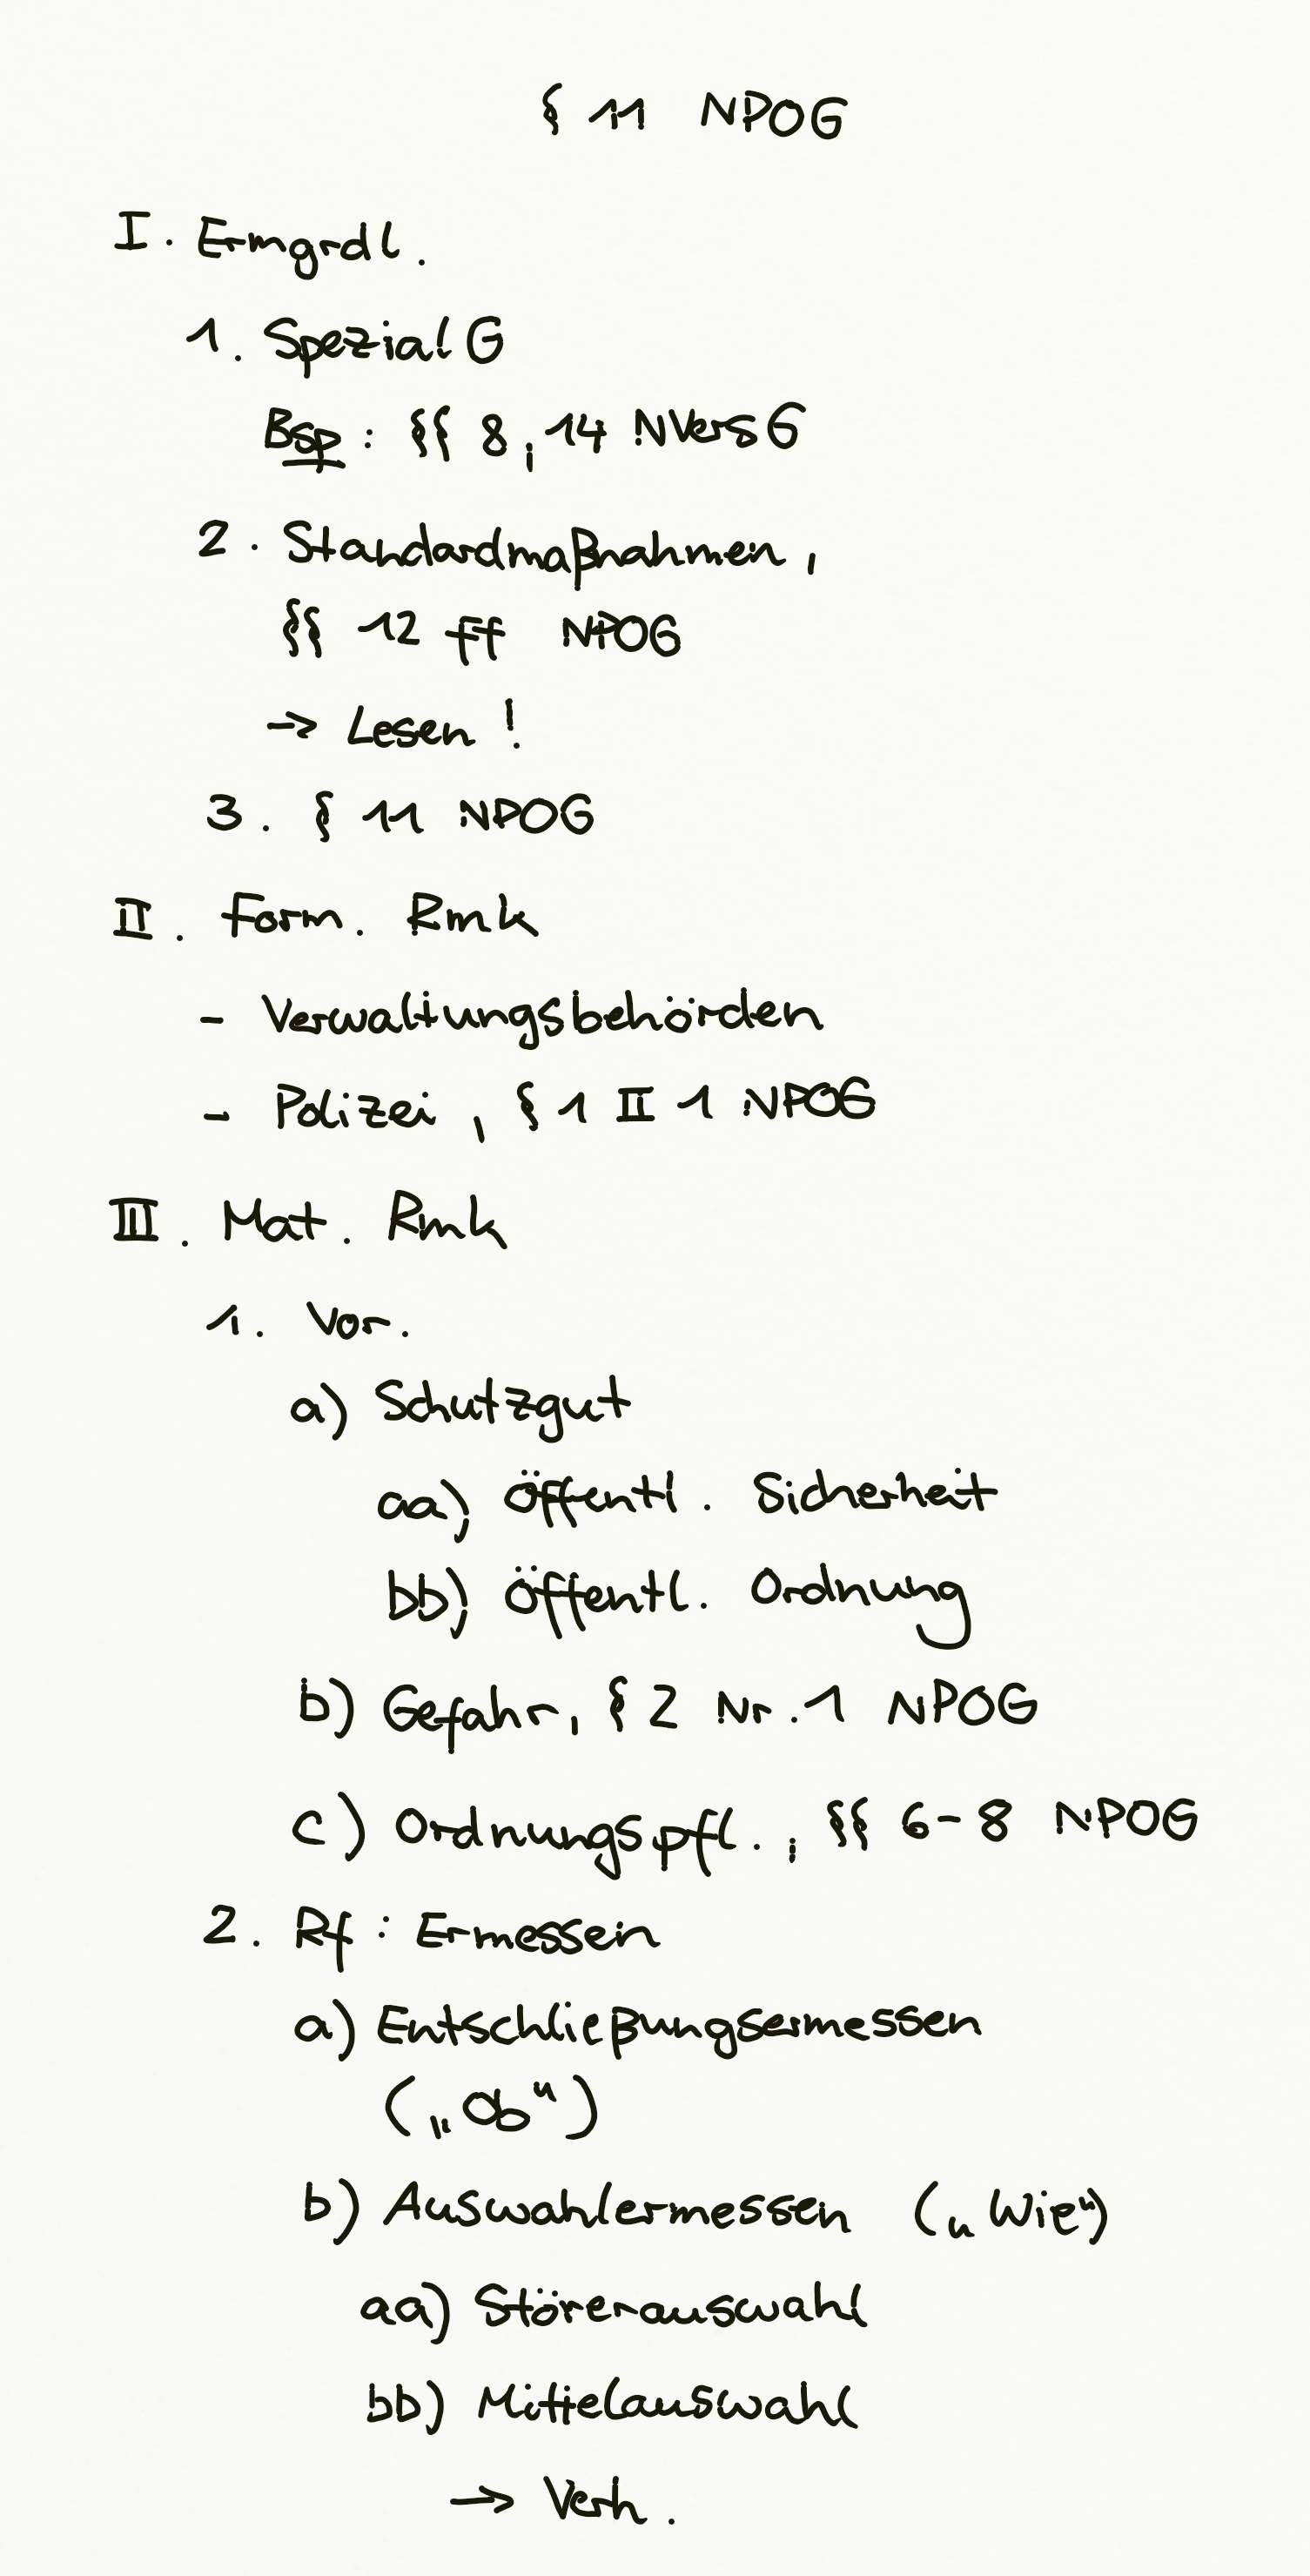 § 11 NPOG
I. Ermgrdl.
1. SpezialG
Bsp: §§ 8, 14 NVersG
2. Standardmaßnahmen,
§§ 12 ff NPOG
→ Lesen!
3. § 11 NPOG
II. Form. Rmk
- Verwaltungsbehörden
- Polizei, § 1 II 1 NPOG
III. Mat. Rmk
1. Vor.
a) Schutzgut
aa) öffentl. Sicherheit
bb) öffentl. Ordnung
b) Gefahr, § 2 Nr. 1 NPOG
c) Ordnungspfl., §§ 6-8 NPOG
2. Rf: Ermessen
a) Entschließungsermessen
(„Ob“)
b) Auswahlermessen („Wie“)
aa) Störerauswahl
bb) Mittelauswahl
→ Verh.